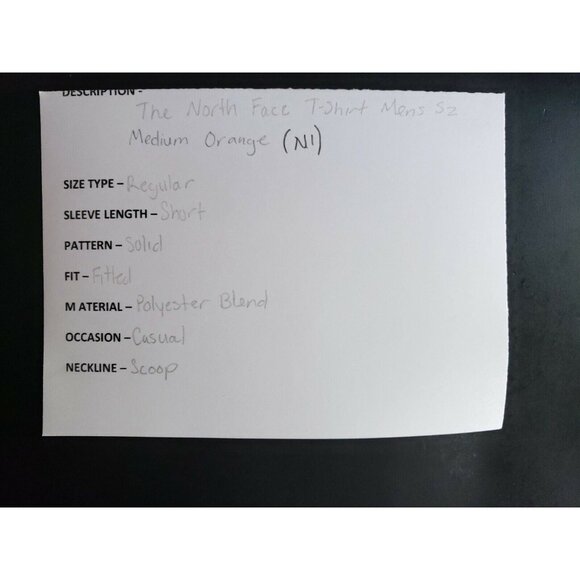 DESCRIPTION -
The North Face T-Shirt Mens Sz
Medium Orange (N1)
SIZE TYPE – Regular
SLEEVE LENGTH – Short
PATTERN – Solid
FIT – Fitted
M ATERIAL – Polyester Blend
OCCASION – Casual
NECKLINE – Scoop